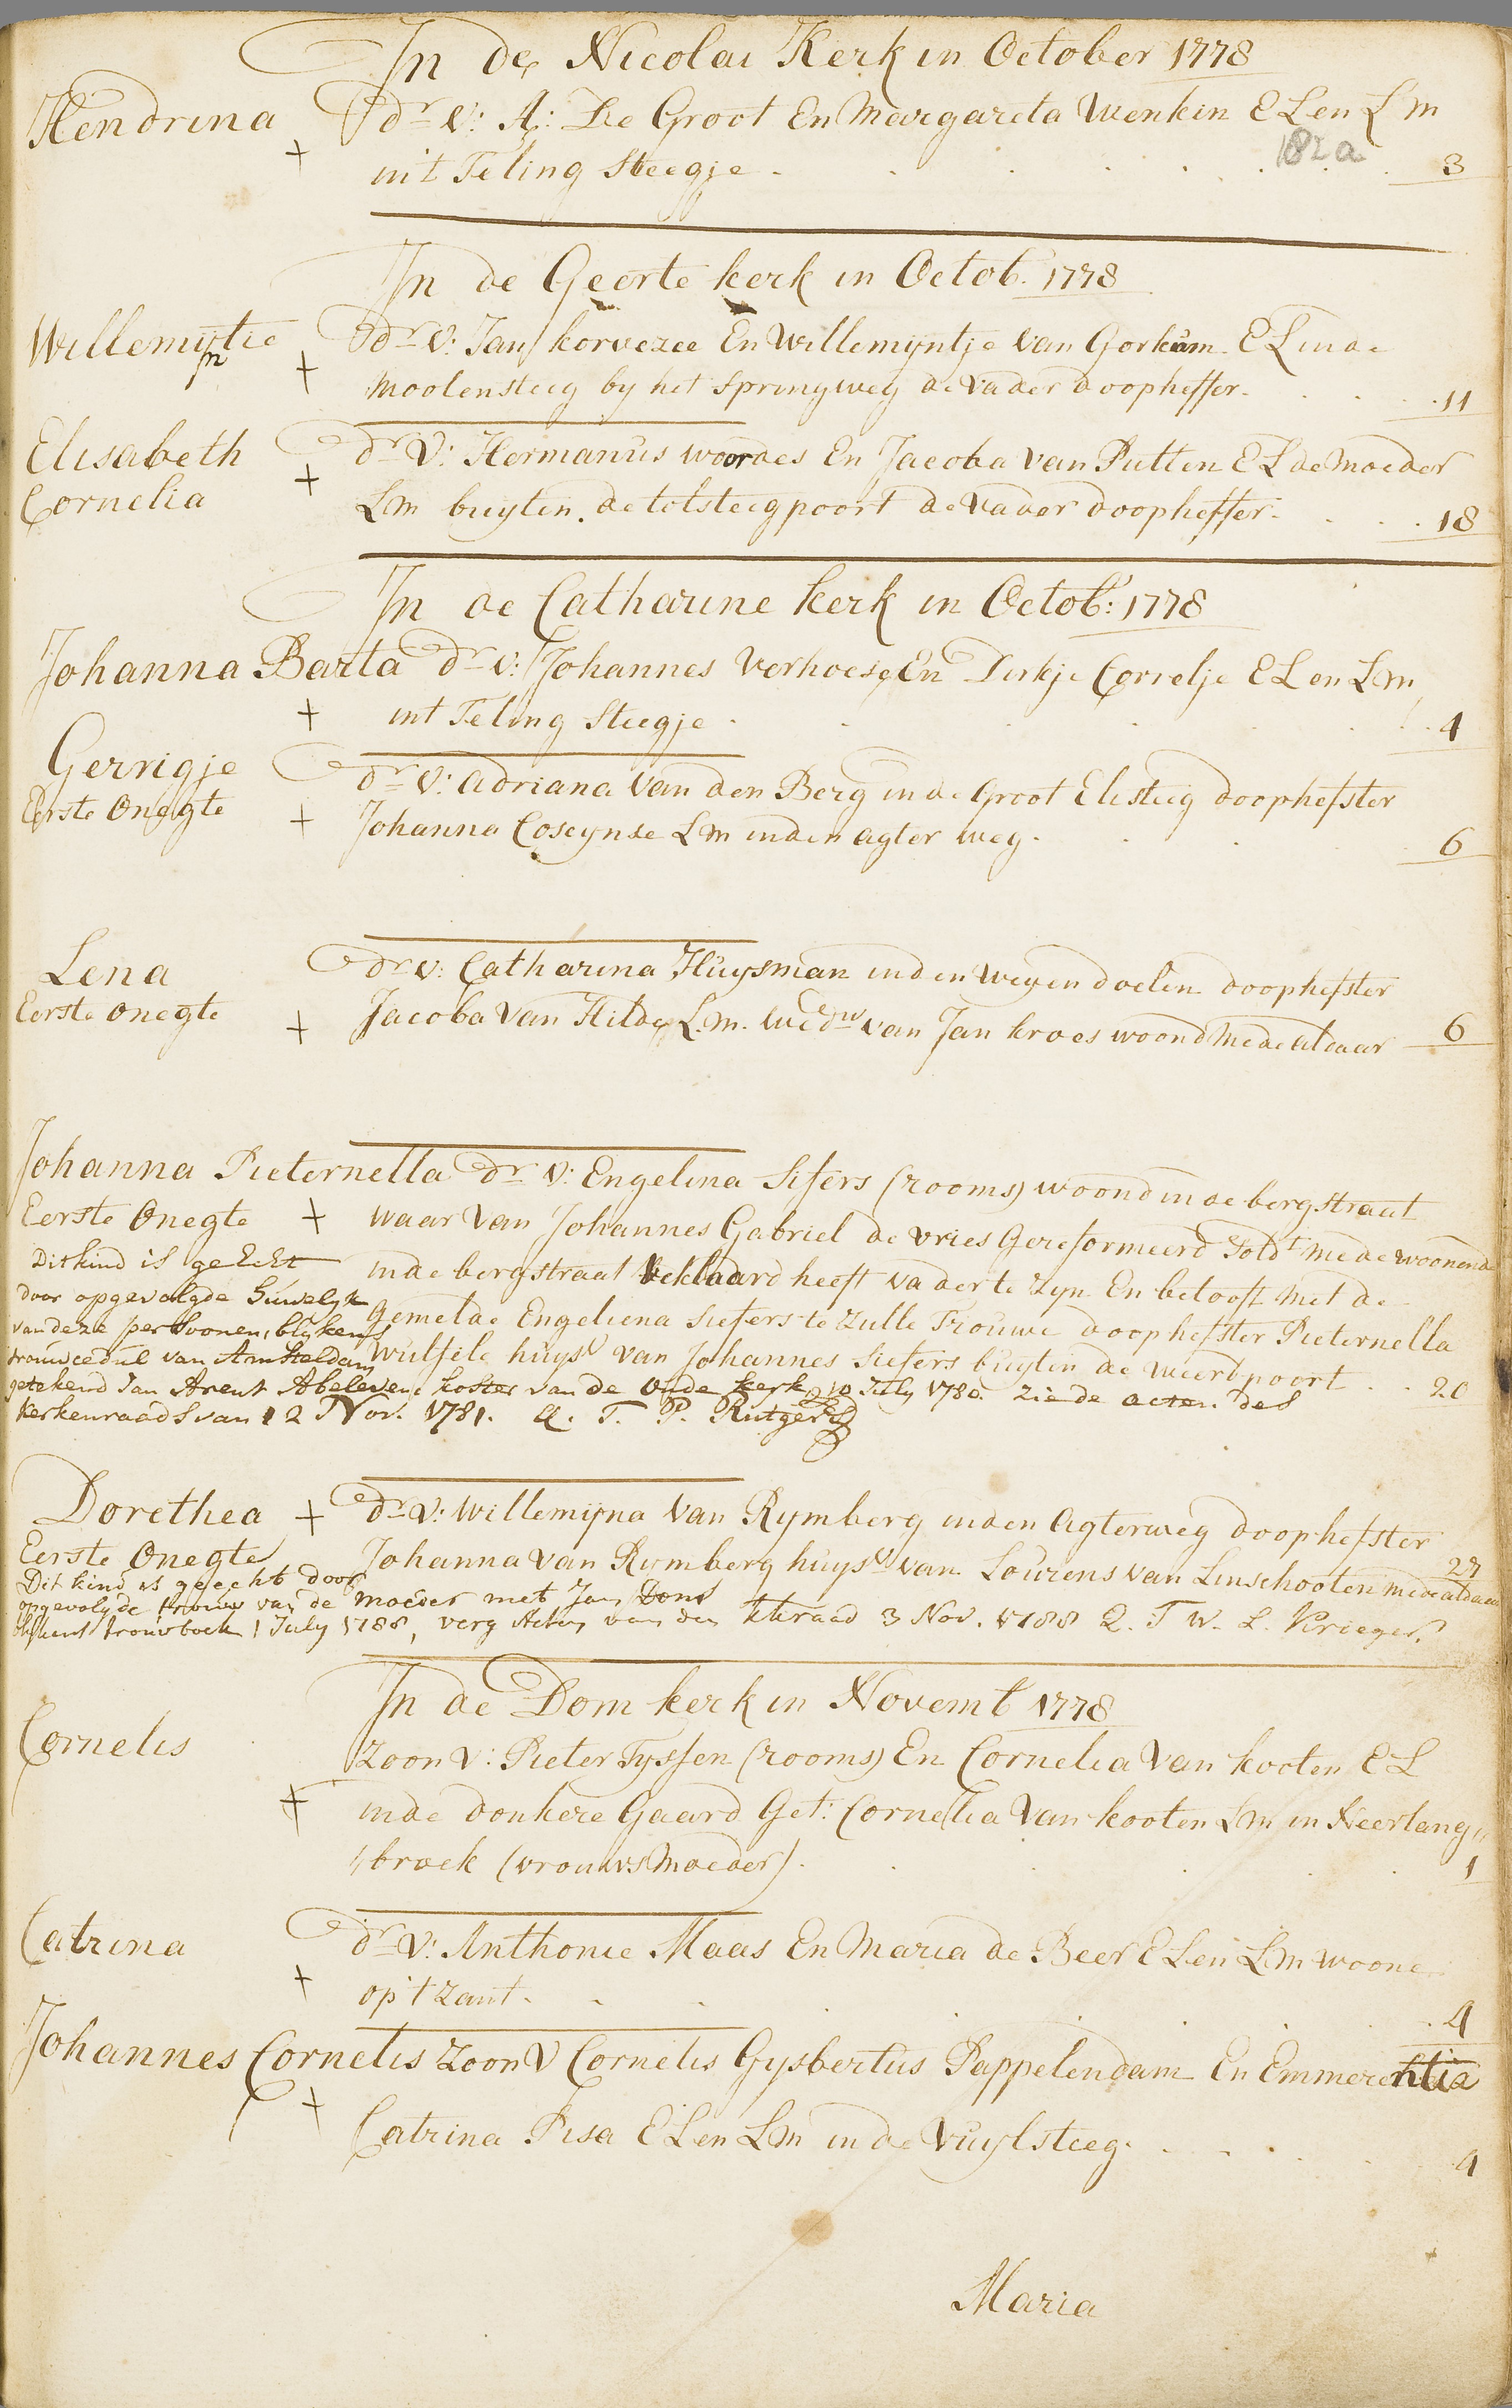 In de Nicolai Kerk in October 1778
Hendrina dr v: A: De Groot En Margareta Wenken E L en L m
182a
+ uit Teling Steegje . . . . . . 3
In de Geerte kerk in Octob. 1778
Willemijntie dr v: Jan korvezee En Willemijntje van Gorkum E L in de
+ Moolensteeg by het springweg de vader doopheffer . . . . 11
Elisabeth dr V: Hermanus woordes En Jacoba van Putten E L de moeder
Cornelia + L m buyten de tolsteegpoort de vader doopheffer . . . . 18
In de Catharine kerk in Octob: 1778
Johanna Barta dr v: Johannes Verhoef En Dirkje Correlje E L en L m
+ int Teling Steegje . . . . . 4
Gerrigje dr V: Adriana van den Berg in de Groot Elisteeg doophefster
Eerste Onegte + Johanna Coseynse L m in den agter weg . . . . 6
Lena dr v: Catharina Huysman in den Weyen doelen doophefster
Eerste onegte + Jacoba van Hilde L.m. Wedw van Jan kroes woond mede aldaar 6
Johanna Pieternella dr V: Engelina Sifers (rooms) woond in de bergstraat
Eerste Onegte + waar van Johannes Gabriel de vries Gereformeerd Soldt mede woonende
Dit kind is geEcht in de bergstraat verklaard heeft vader te zyn En belooft met de
door opgevolgde Huwelyk gemelde Engeliena Siefers te Zulle Trouwe doophefster Pieternella
van deze persoonen, blykens
trouwcedul van Amsteldam Wulfele huysv van Johannes Siefers buyten de weertpoort . . 20
getekend Jan Arent Abeleven koster van de Oude kerk, 10 July 1780. Zie de acten des
kerkenraads van 12 Nov. 1781. Q. T. P. Rutgers
Dorethea + dr v: Willemijna van Rymberg in den Agterweg doophefster
Eerste Onegte Johanna van Rymberg huysv van Lourens van Linschooten mede aldaar 27
Dit kind is geecht door
opgevolgde trouw van de moeder met Jan Dons
blykens trouwboek 1 July 1788, verg Acten van den kkraad 3 Nov. 1788 Q. T W. L. Krieger.
In de Dom kerk in Novemb 1778
Cornelis Zoon v: Pieter Tyssen (rooms) En Cornelia van kooten E L
+ in de donkere Gaard Get: Cornelia van kooten L m in Neerlang„
„broek (vrouws Moeder) . . . . . 1
Catrina dr v: Anthonie Maas En Maria de Beer E L en L m woone
+ op't zant . . . . . 4
Johannes Cornelis Zoon V Cornelis Gysbertus Pappelendam En Emmerentia
+ Catrina Pisa E L en L m in de Vuylsteeg . . . . . 4
Maria